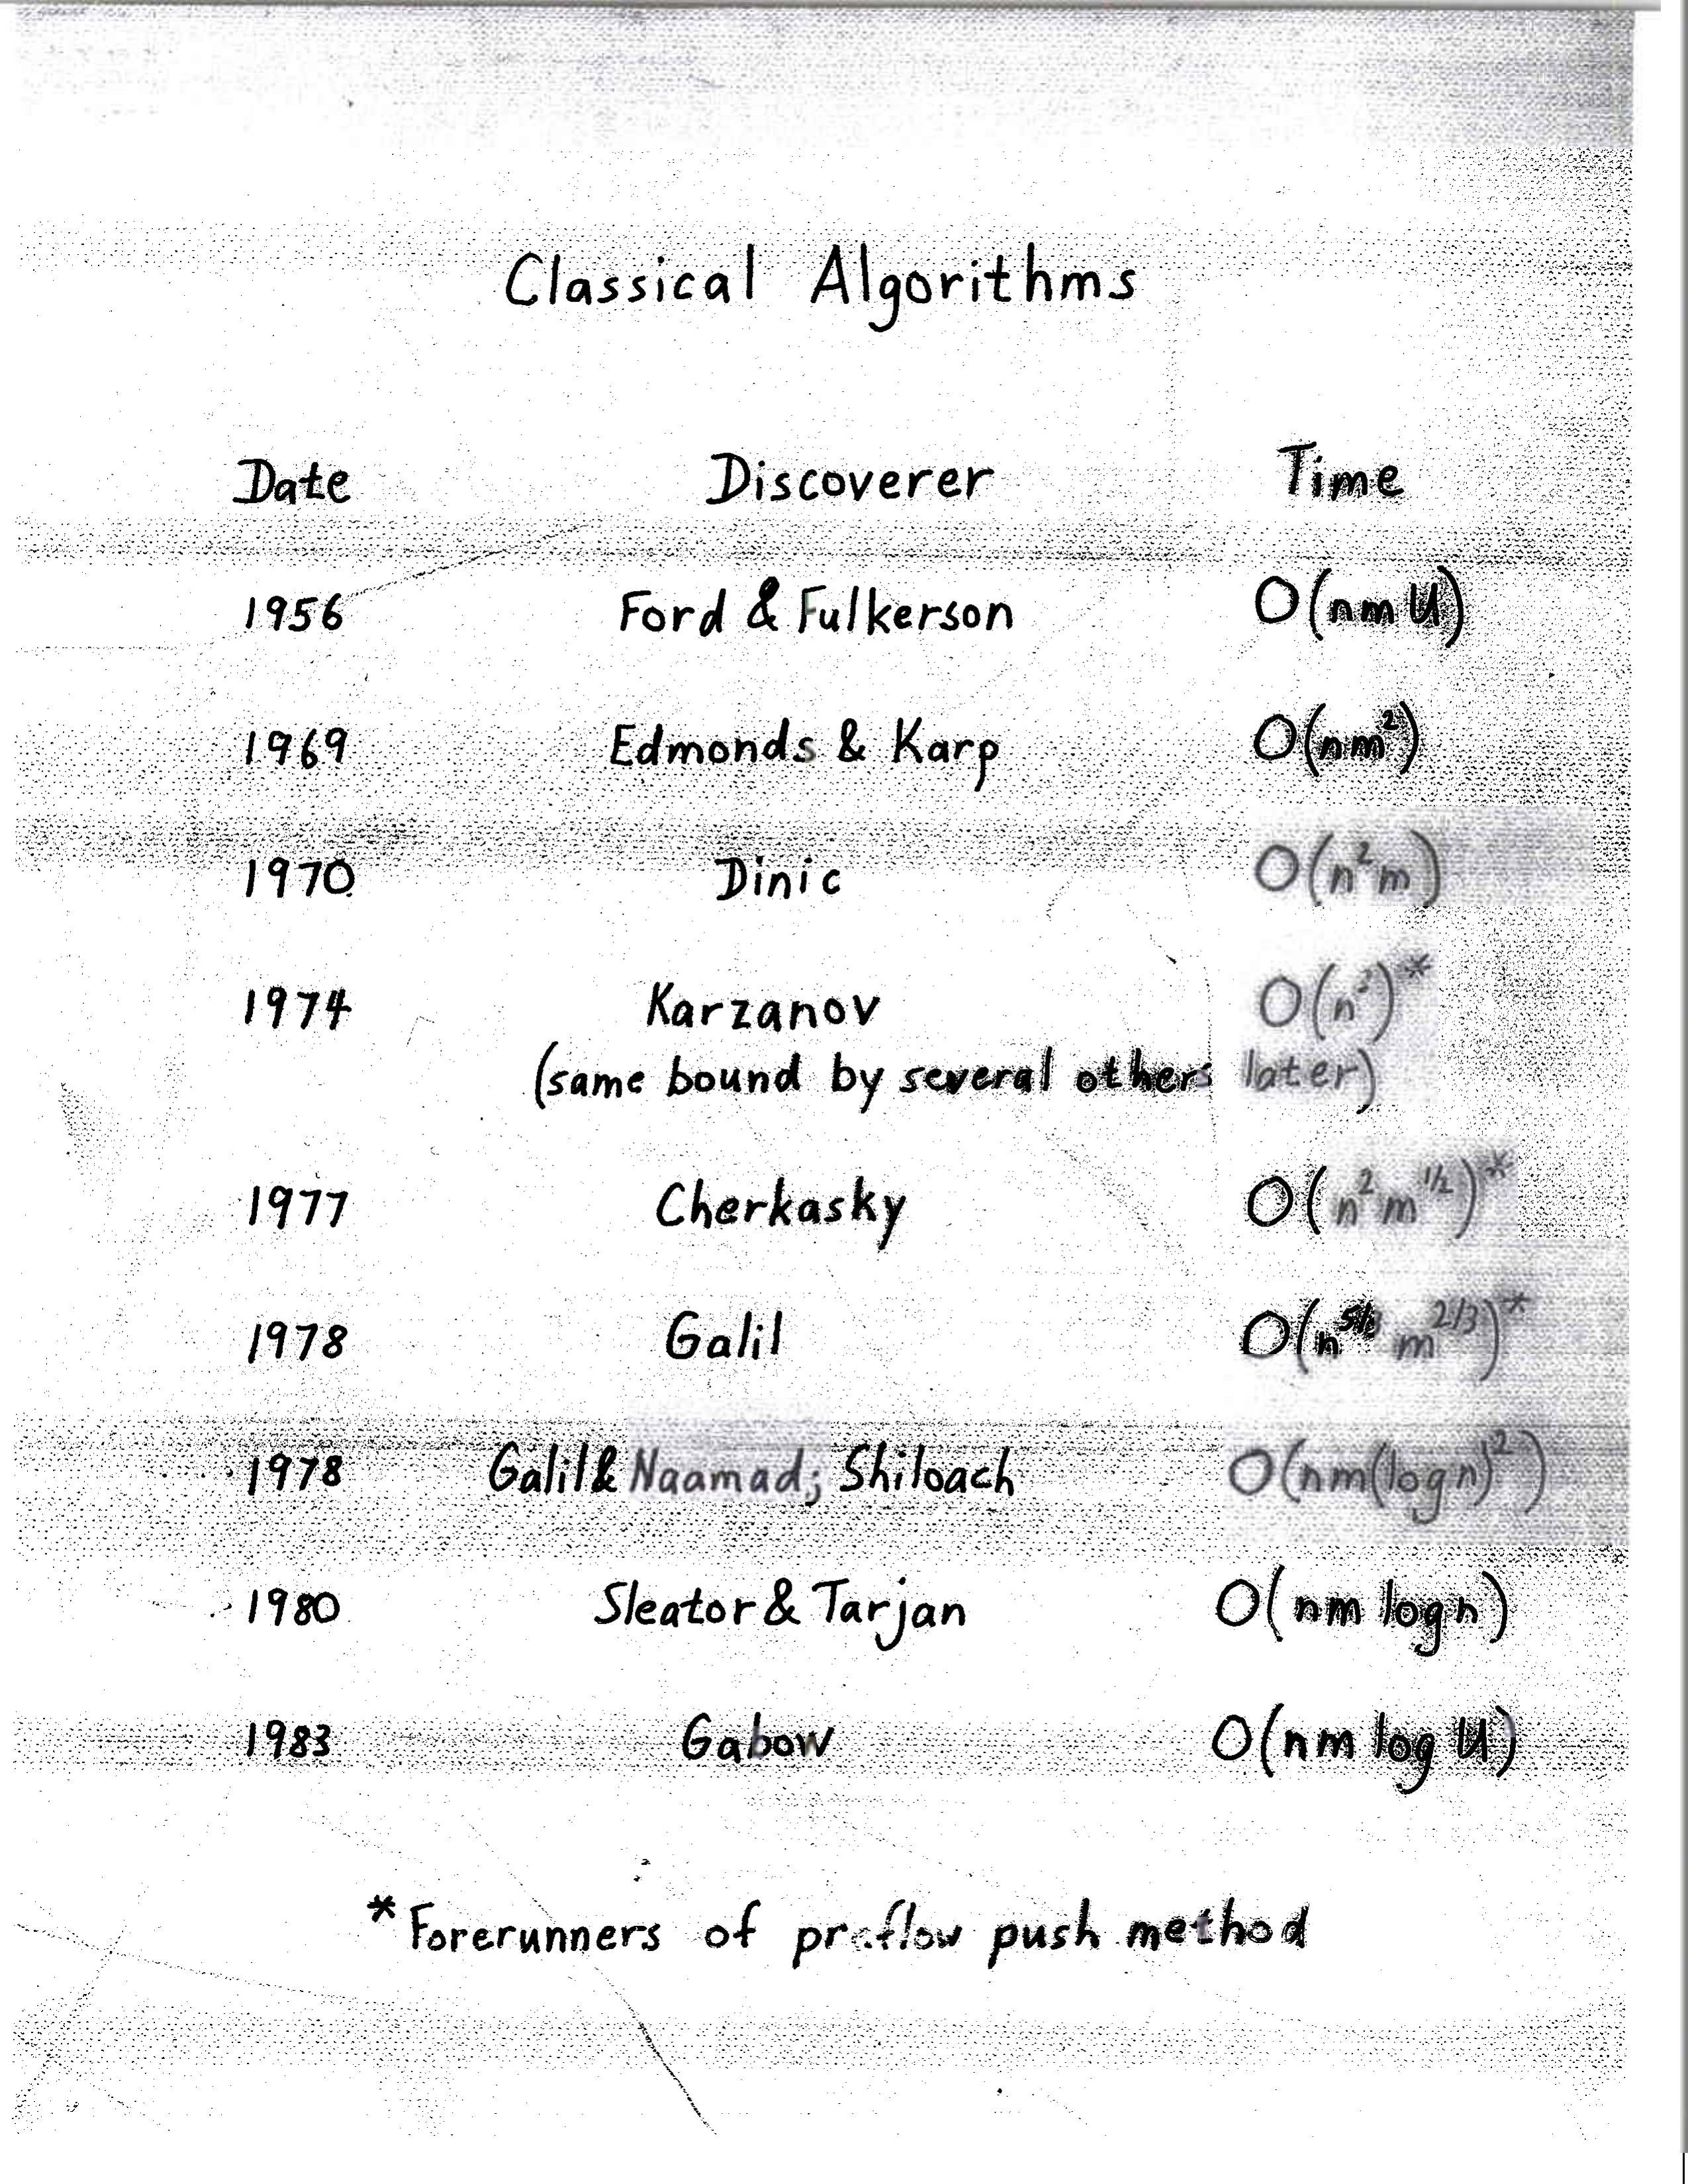 Classical Algorithms
Date Discoverer Time
1956 Ford & Fulkerson O(nmU)
1969 Edmonds & Karp O(nm²)
1970 Dinic O(n²m)
1974 Karzanov O(n³)*
(same bound by several others later)
1977 Cherkasky O(n²m^1/2)*
1978 Galil O(n^5/3 m^2/3)*
1978 Galil & Naamad; Shiloach O(nm(log n)²)
1980 Sleator & Tarjan O(nm log n)
1983 Gabow O(nm log U)
*Forerunners of preflow push method